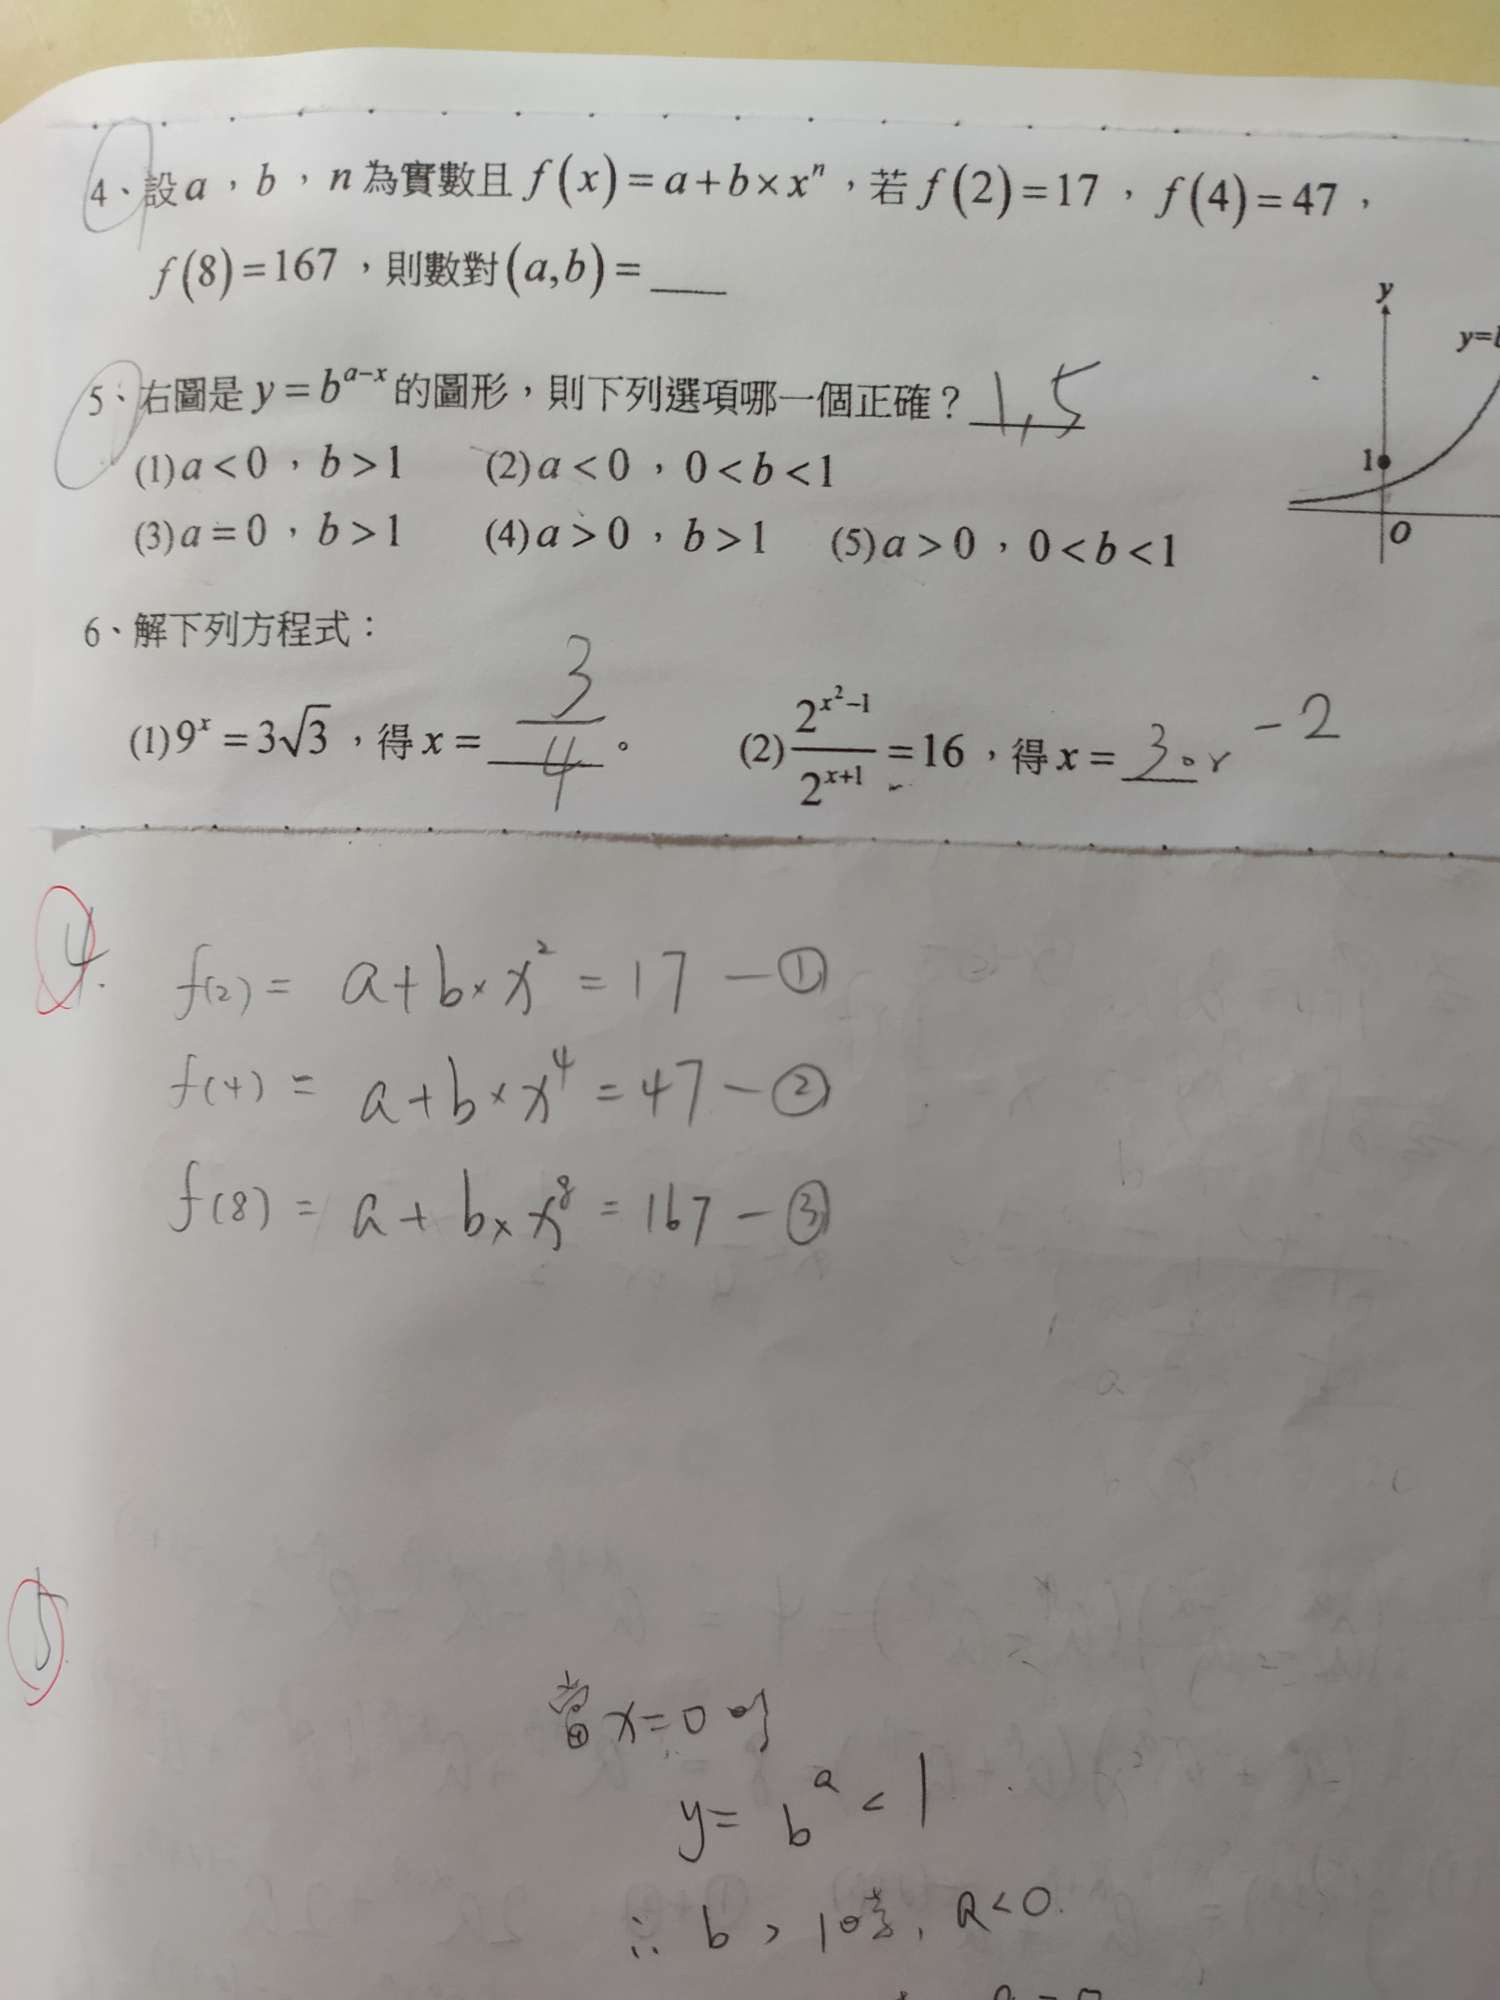 4、設a，b，n為實數且f(x)=a+b×xⁿ，若f(2)=17，f(4)=47，
f(8)=167，則數對(a,b)=___
y
y=b
5、右圖是y=b^(a-x)的圖形，則下列選項哪一個正確？1,5
(1)a<0，b>1 (2)a<0，0<b<1
1
(3)a=0，b>1 (4)a>0，b>1 (5)a>0，0<b<1
O
6、解下列方程式：
(1)9^x=3√3，得x=3/4。 (2)2^(x²-1)/2^(x+1)=16，得x=3 or -2
4. f(2)= a+b×x²=17—①
f(4)= a+b×x⁴=47—②
f(8)= a+b×x⁸=167—③
5.
當x=0時
y= b^a < 1
∴ b > 1時, a<0.